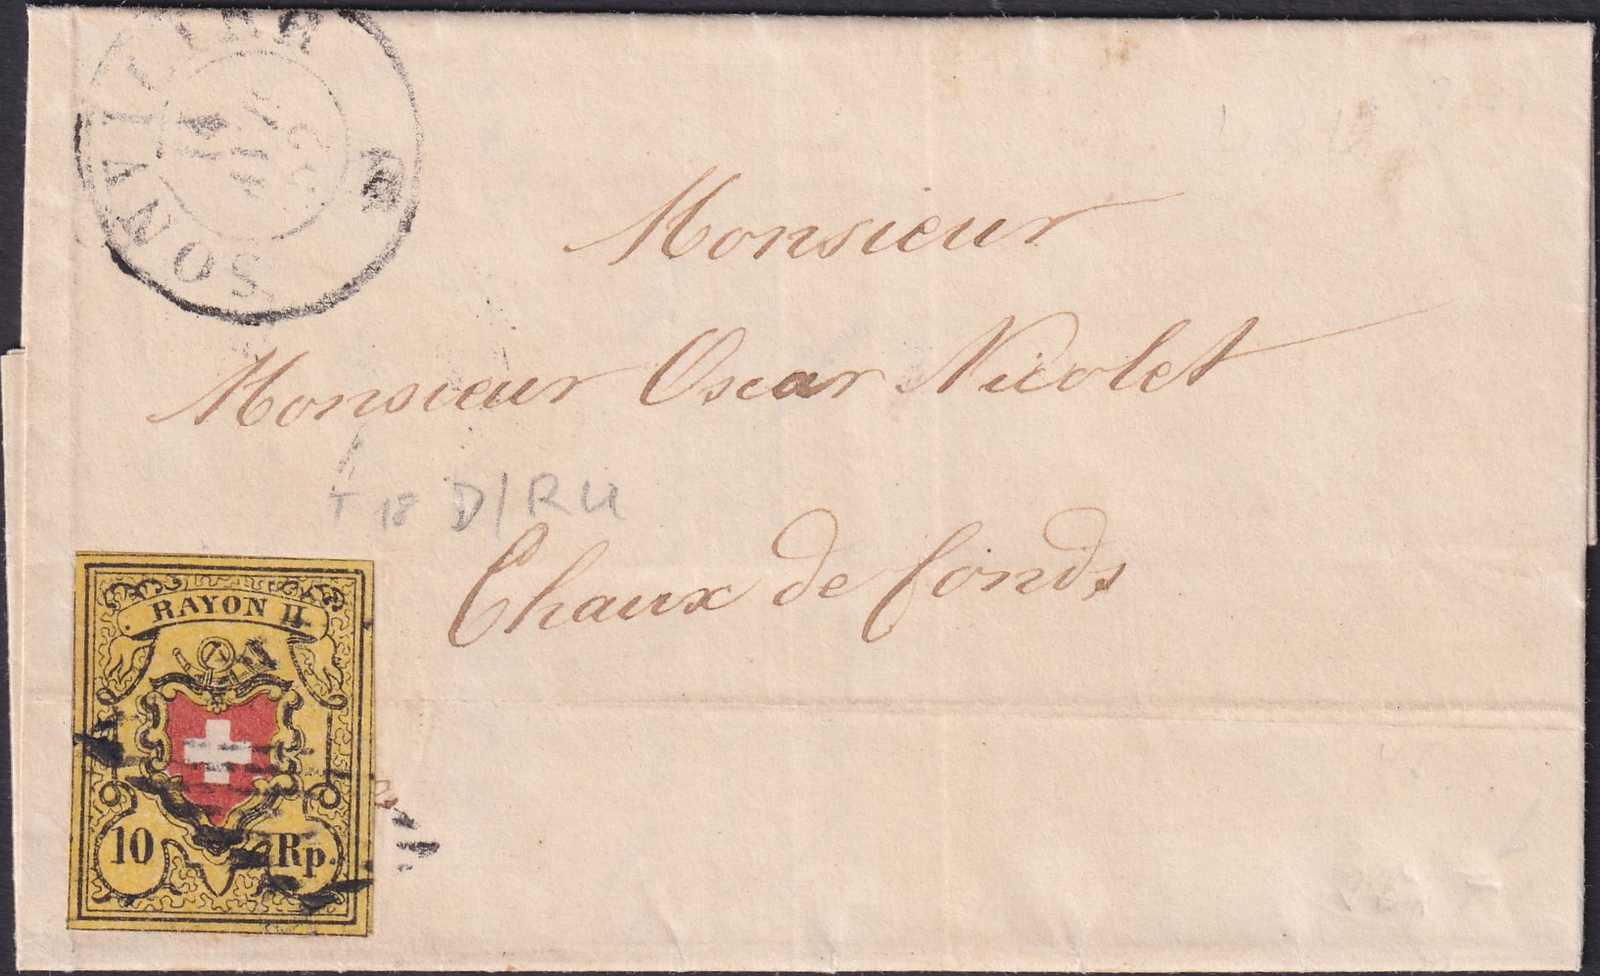 SONVILIER
Monsieur
Monsieur Oscar Nicolet
T 18 D/RU
Chaux de fonds
RAYON II.
10 Rp.